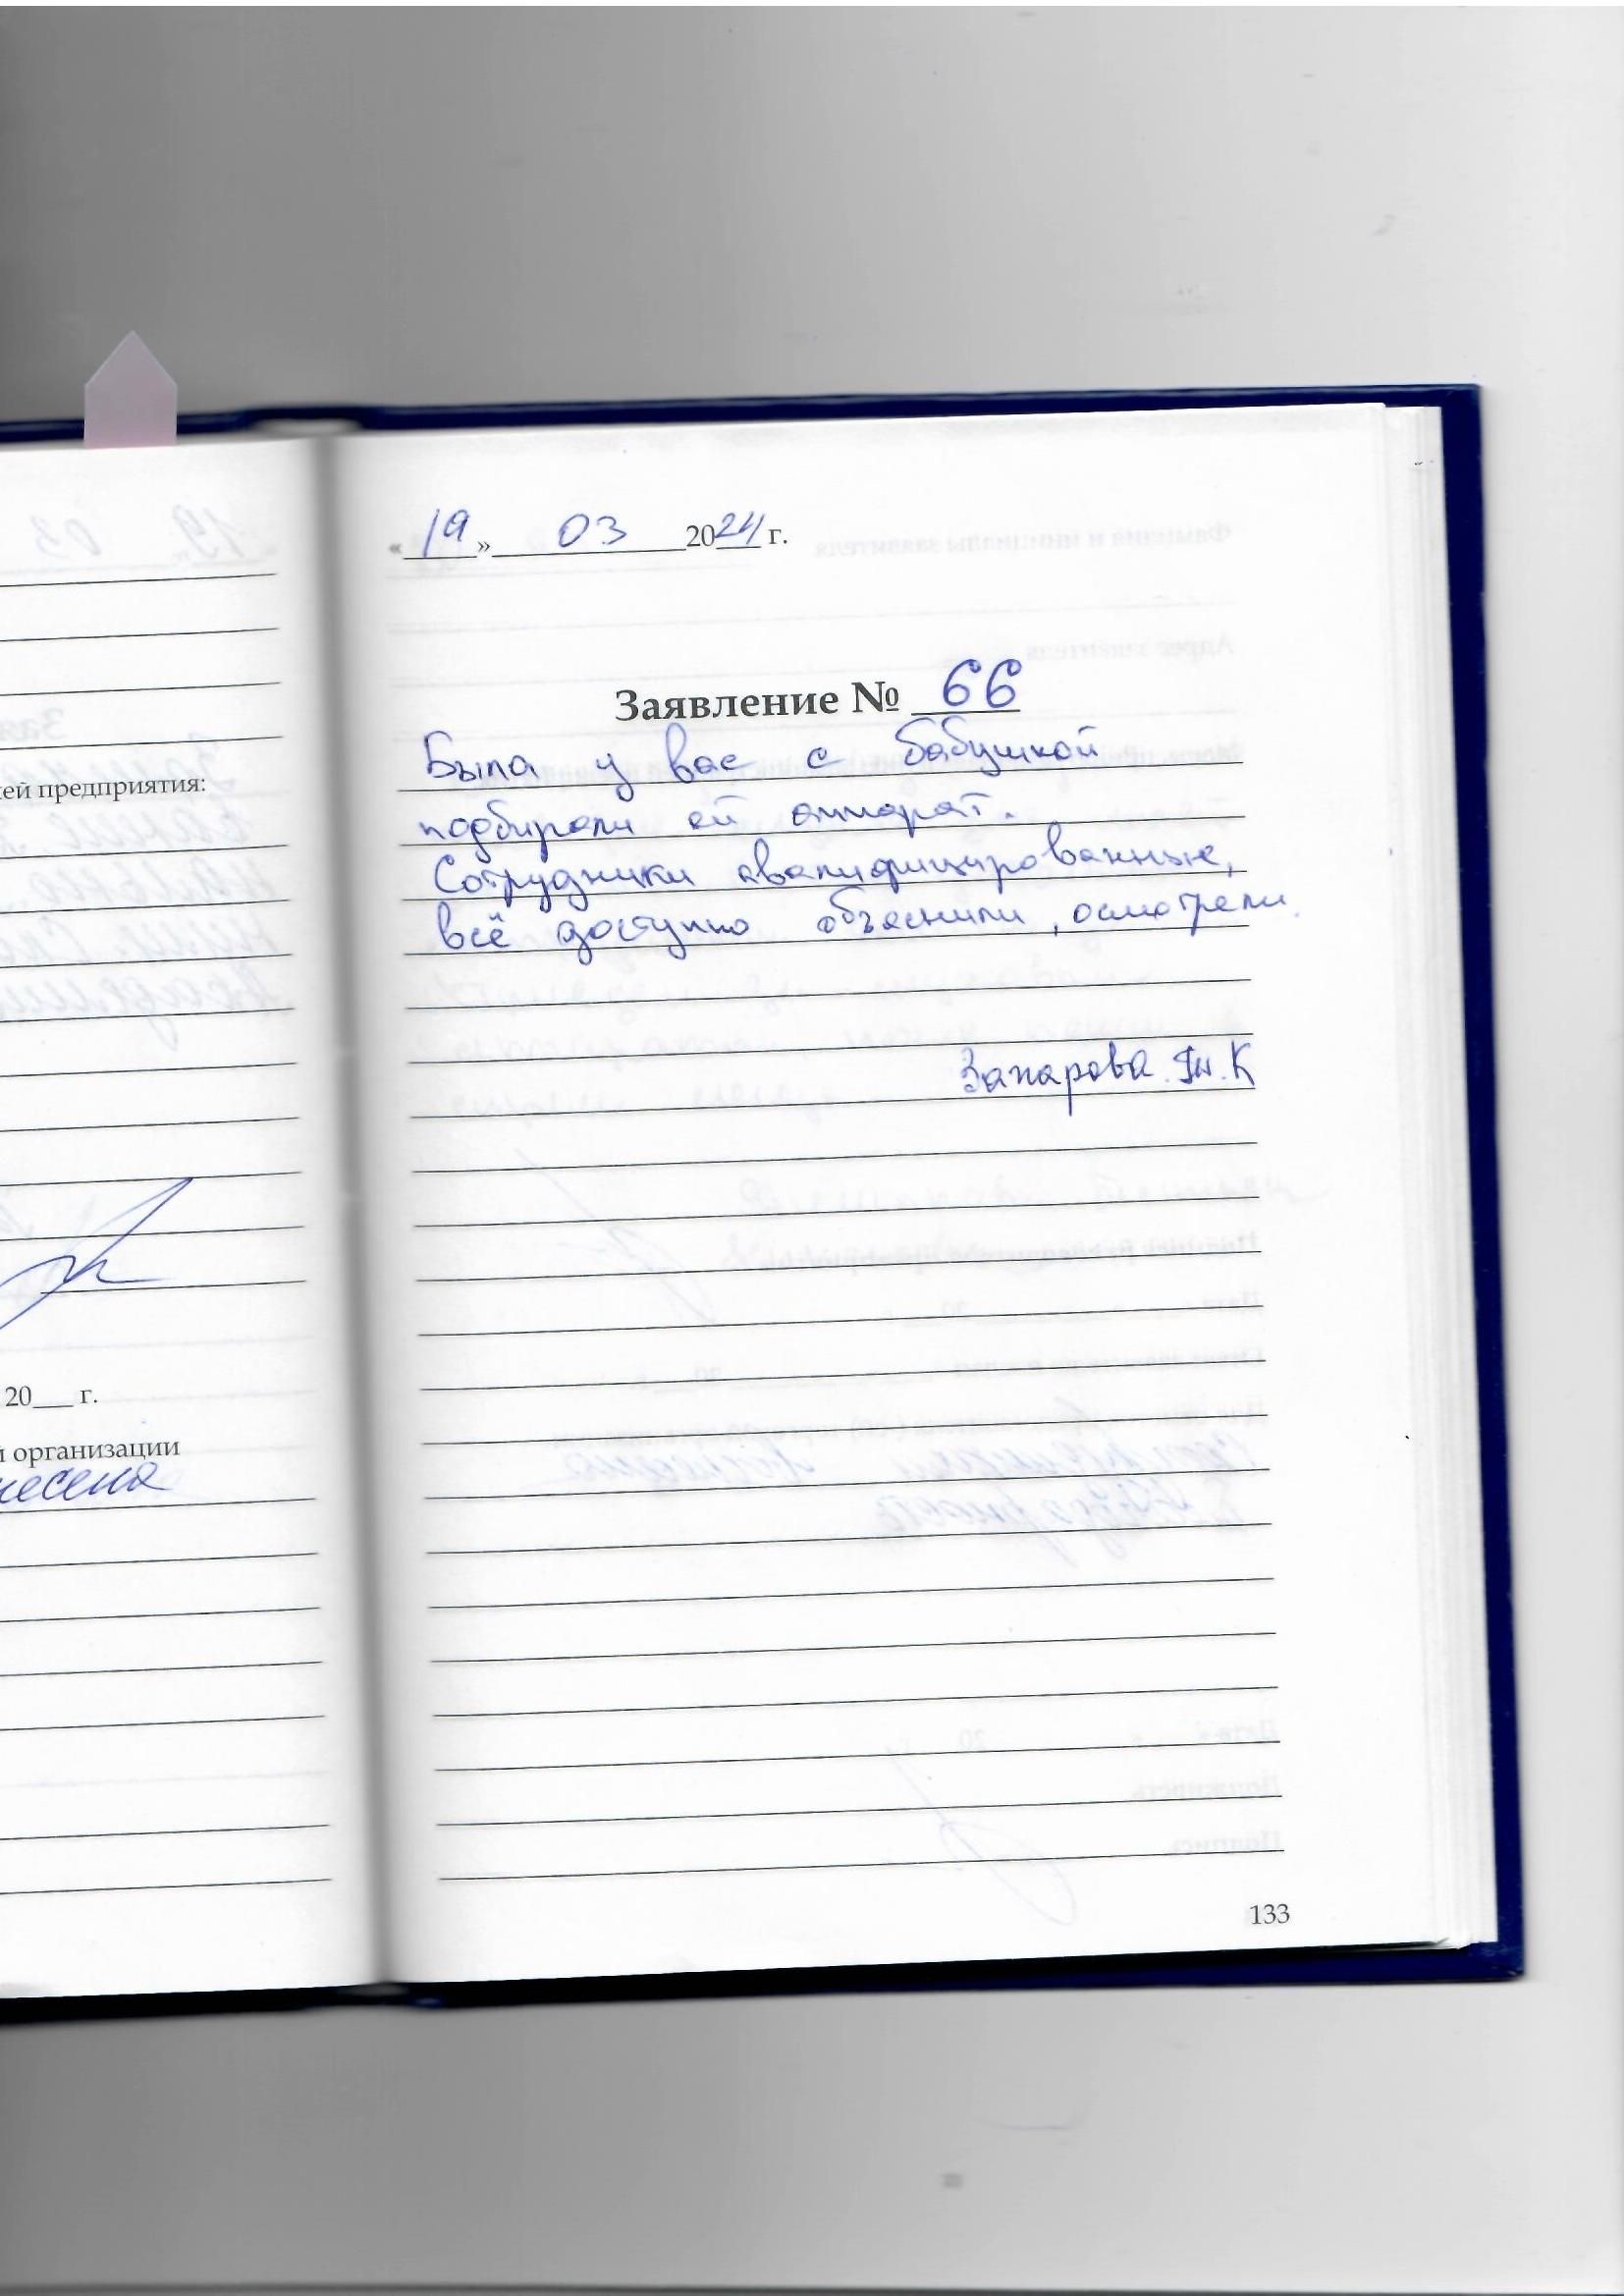 «19» 03 2024 г.
Заявление № 66
Была у вас с бабушкой
подбирали ей аппарат.
Сотрудники квалифицированные,
всё доступно объяснили, осмотрели.
Запарова. К
133
ей предприятия:
20___ г.
организации
несена